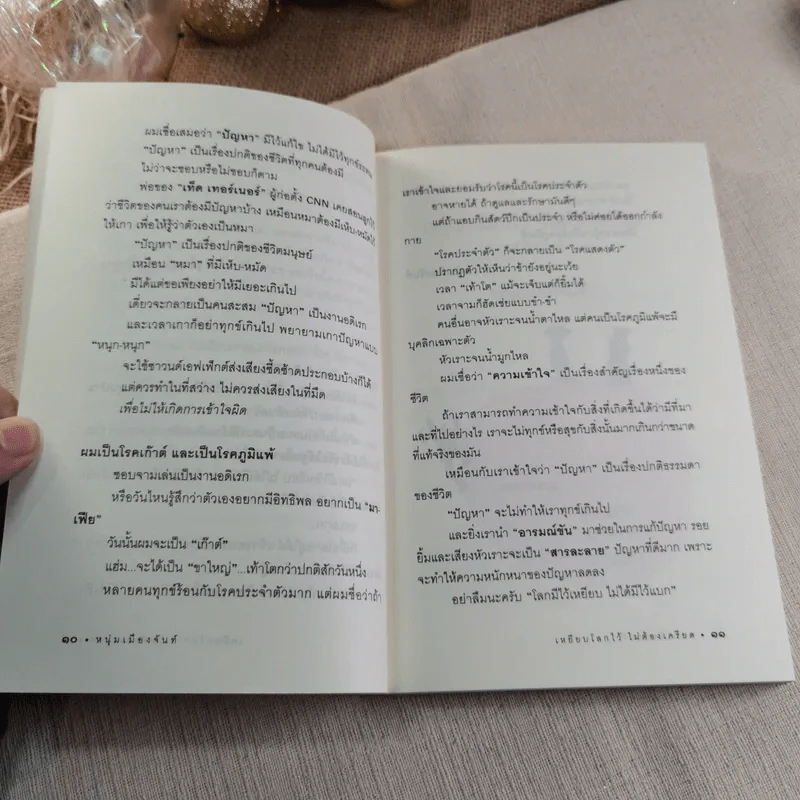 ผมเชื่อเสมอว่า "ปัญหา" มีไว้แก้ไข ไม่ได้มีไว้ทุกข์ระทม
"ปัญหา" เป็นเรื่องปกติของชีวิตที่ทุกคนต้องมี
ไม่ว่าจะชอบหรือไม่ชอบก็ตาม
พ่อของ "เท็ด เทอร์เนอร์" ผู้ก่อตั้ง CNN เคยสอนลูกไว้
ว่าชีวิตของคนเราต้องมีปัญหาบ้าง เหมือนหมาต้องมีเห็บ-หมัดไว้
ให้เกา เพื่อให้รู้ว่าตัวเองเป็นหมา
"ปัญหา" เป็นเรื่องปกติของชีวิตมนุษย์
เหมือน "หมา" ที่มีเห็บ-หมัด
มีได้แต่ขอเพียงอย่าให้มีเยอะเกินไป
เดี๋ยวจะกลายเป็นคนสะสม "ปัญหา" เป็นงานอดิเรก
และเวลาเกาก็อย่าทุกข์เกินไป พยายามเกาปัญหาแบบ
"หนุก-หนุก"
จะใช้ซาวนด์เอฟเฟ็กต์ส่งเสียงซี้ดซ้าดประกอบบ้างก็ได้
แต่ควรทำในที่สว่าง ไม่ควรส่งเสียงในที่มืด
เพื่อไม่ให้เกิดการเข้าใจผิด
ผมเป็นโรคเก๊าต์ และเป็นโรคภูมิแพ้
ชอบจามเล่นเป็นงานอดิเรก
หรือวันไหนรู้สึกว่าตัวเองอยากมีอิทธิพล อยากเป็น "มา-
เฟีย"
วันนั้นผมจะเป็น "เก๊าต์"
แฮ่ม...จะได้เป็น "ขาใหญ่"...เท้าโตกว่าปกติสักวันหนึ่ง
หลายคนทุกข์ร้อนกับโรคประจำตัวมาก แต่ผมเชื่อว่าถ้า
๑๐ • หนุ่มเมืองจันท์
เราเข้าใจและยอมรับว่าโรคนี้เป็นโรคประจำตัว
อาจหายได้ ถ้าดูแลและรักษามันดีๆ
แต่ถ้าแอบกินสัตว์ปีกเป็นประจำ หรือไม่ค่อยได้ออกกำลัง
กาย
"โรคประจำตัว" ก็จะกลายเป็น "โรคแสดงตัว"
ปรากฏตัวให้เห็นว่าข้ายังอยู่นะเว้ย
เวลา "เท้าโต" แม้จะเจ็บแต่ก็ยิ้มได้
เวลาจามก็ฮัดเช่ยแบบขำ-ขำ
คนอื่นอาจหัวเราะจนน้ำตาไหล แต่คนเป็นโรคภูมิแพ้จะมี
บุคลิกเฉพาะตัว
หัวเราะจนน้ำมูกไหล
ผมเชื่อว่า "ความเข้าใจ" เป็นเรื่องสำคัญเรื่องหนึ่งของ
ชีวิต
ถ้าเราสามารถทำความเข้าใจกับสิ่งที่เกิดขึ้นได้ว่ามีที่มา
และที่ไปอย่างไร เราจะไม่ทุกข์หรือสุขกับสิ่งนั้นมากเกินกว่าขนาด
ที่แท้จริงของมัน
เหมือนกับเราเข้าใจว่า "ปัญหา" เป็นเรื่องปกติธรรมดา
ของชีวิต
"ปัญหา" จะไม่ทำให้เราทุกข์เกินไป
และยิ่งเรานำ "อารมณ์ขัน" มาช่วยในการแก้ปัญหา รอย
ยิ้มและเสียงหัวเราะจะเป็น "สารละลาย" ปัญหาที่ดีมาก เพราะ
จะทำให้ความหนักหนาของปัญหาลดลง
อย่าลืมนะครับ "โลกมีไว้เหยียบ ไม่ได้มีไว้แบก"
เหยียบโลกไว้ ไม่ต้องเครียด • ๑๑